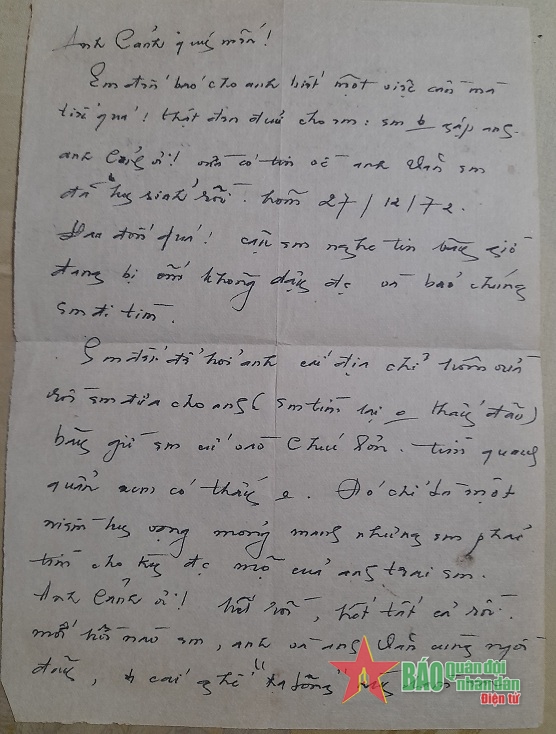 Anh Cảnh quý mến!
Em đến báo cho anh biết một việc cần mà
quá! Thật đau đớn cho em: em k gặp ang.
anh Cảnh ơi! vừa có tin về anh Vấn em
đã hy sinh rồi. hôm 27/12/72.
Đau đớn quá! cậu em nghe tin bây giờ
đang bị ốm không dậy đc và bảo chúng
em đi tìm.
Em đến để hỏi anh cái địa chỉ hôm vừa
rồi em đưa cho ang (em tìm lại o thấy đâu)
bây giờ em cứ vào Chú Sản. tìm quanh
quẩn xem có thấy o. Đó chỉ là một
niềm hy vọng mỏng manh nhưng em phải
tìm cho kỳ đc mộ của ang trai em.
Anh Cảnh ơi! hết rồi, hết tất cả rồi.
mới hôm nào em, anh và ang Vấn cùng ngồi
đây, cái ghế
BÁO quân đội nhân dân
Điện tử